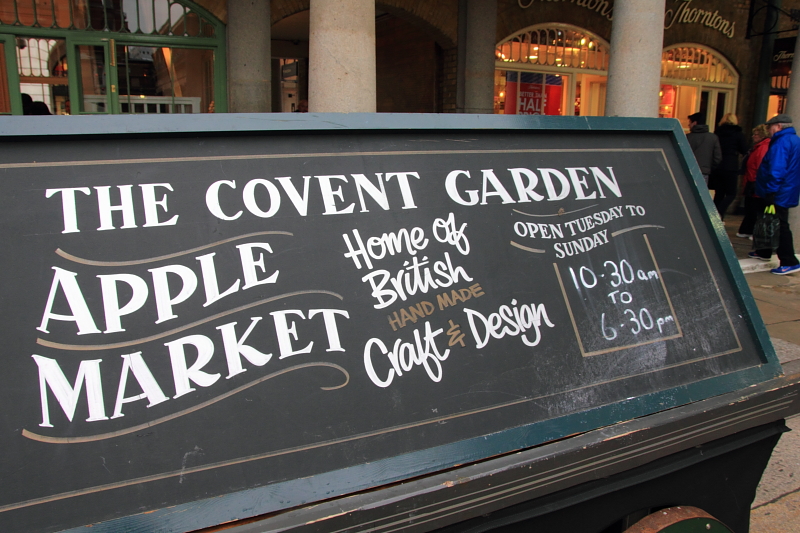 THE COVENT GARDEN
APPLE
MARKET
Home of
British
HAND MADE
Craft & Design
OPEN TUESDAY TO
SUNDAY
10-30am
TO
6-30pm
Thorntons
Thorntons
HALF